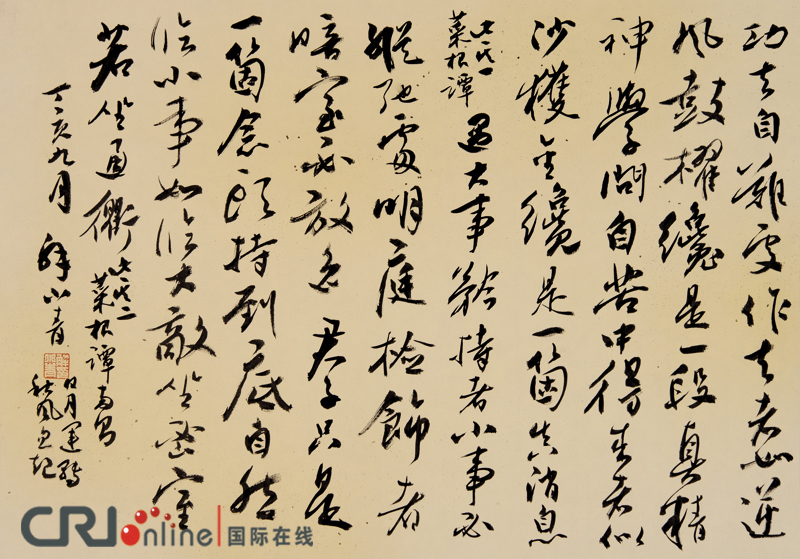 功夫自難處作去者如逆
風鼓櫂纔是一段真精
神學問自苦中得來者似
沙獲金纔是一箇真消息
之一
菜根譚
遇大事矜持者小事必
縱弛處明庭檢飾者
暗室必放君子只是
一箇念頭持到底自然
臨小事如臨大敵坐密室
若坐通衢
之二
菜根譚
丁亥九月
小青
日月運轉
秋風
CRI online 国际在线